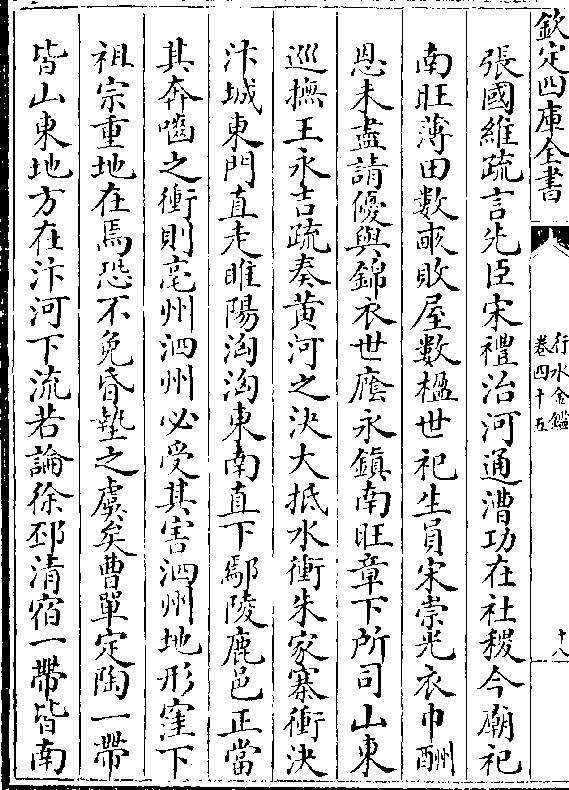 欽定四庫全書
行水金鑑
卷四十五
十八
張國維疏言先臣宋禮治河通漕功在社稷今廟祀
南旺薄田數畝敗屋數楹世祀生員宋崇光衣巾酬
恩未盡請優與錦衣世廕永鎮南旺章下所司山東
巡撫王永吉疏奏黃河之決大抵水衝朱家寨衝決
汴城東門直走睢陽洶洶東南直下鄢陵鹿邑正當
其奔嚙之衝則亳州泗州必受其害泗州地形窪下
祖宗重地在焉恐不免昏墊之虞矣曹單定陶一帶
皆山東地方在汴河下流若論徐邳清宿一帶皆南